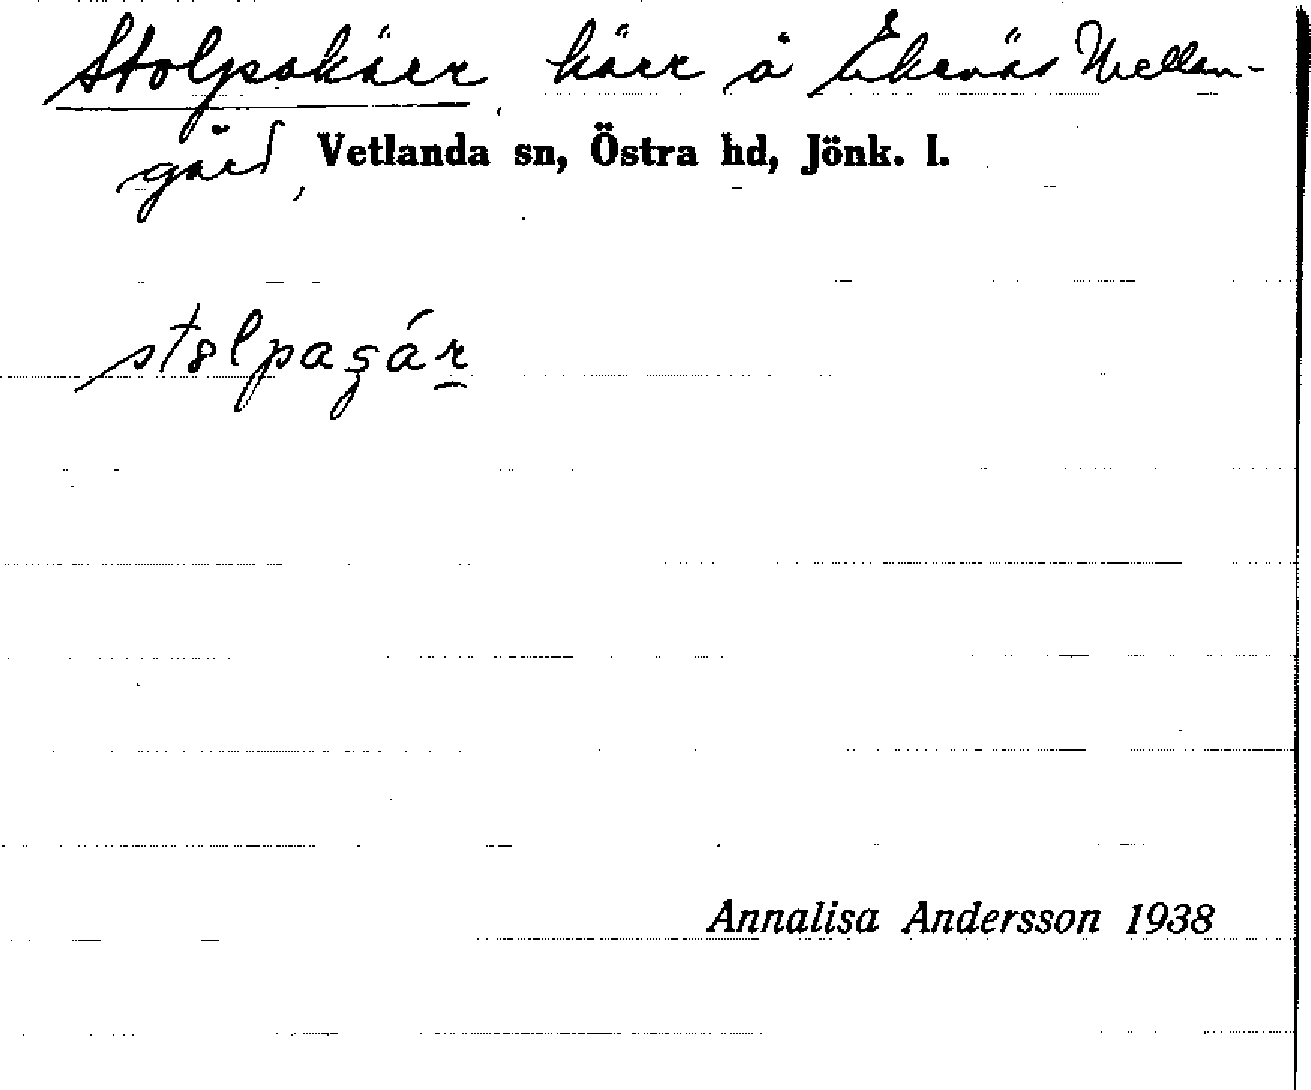 Stolpakärr, kärr å Ekenäs Mellan-
gård, Vetlanda sn, Östra hd, Jönk. l.
Annalisa Andersson 1938